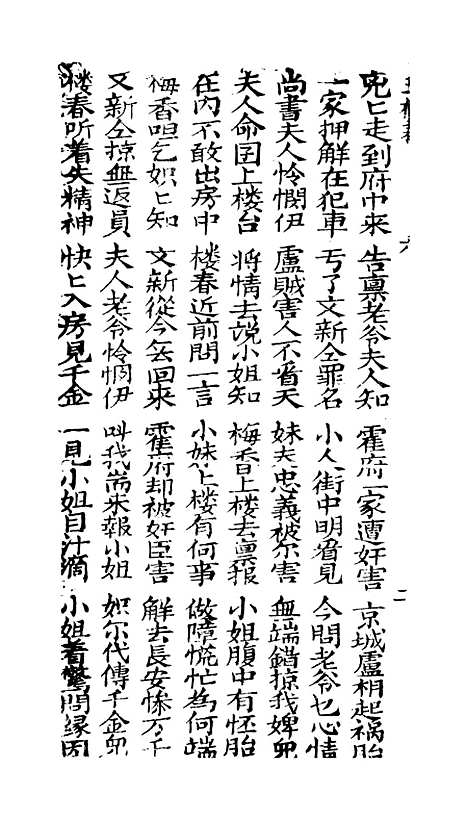 兇匕走到府中來 告禀老爷夫人知 霍府一家遭奸害 京城盧相起禍胎
一家押解在犯車 亏了文新仝罪名 小人街中明看見 今問老爷乜心情
尚書夫人怜憫伊 盧賊害人不看天 妹夫忠義被尔害 無端錯掠我婢兜
夫人命囝上楼台 将情去説小姐知 梅香上楼去禀报 小姐腹中有怀胎
在内不敢出房中 楼春近前問一言 小妹上楼有何事 做隨慌忙為何端
梅香呾乞姒匕知 文新從今無回來 霍府却被奸臣害 解去長安悚万千
文新仝掠無返員 夫人老爷怜悯伊 叫我耑来報小姐 姒尔代傳千金兜
楼春听着失精神 快匕入房見千金 一見小姐目汁滴 小姐着驚問緣因